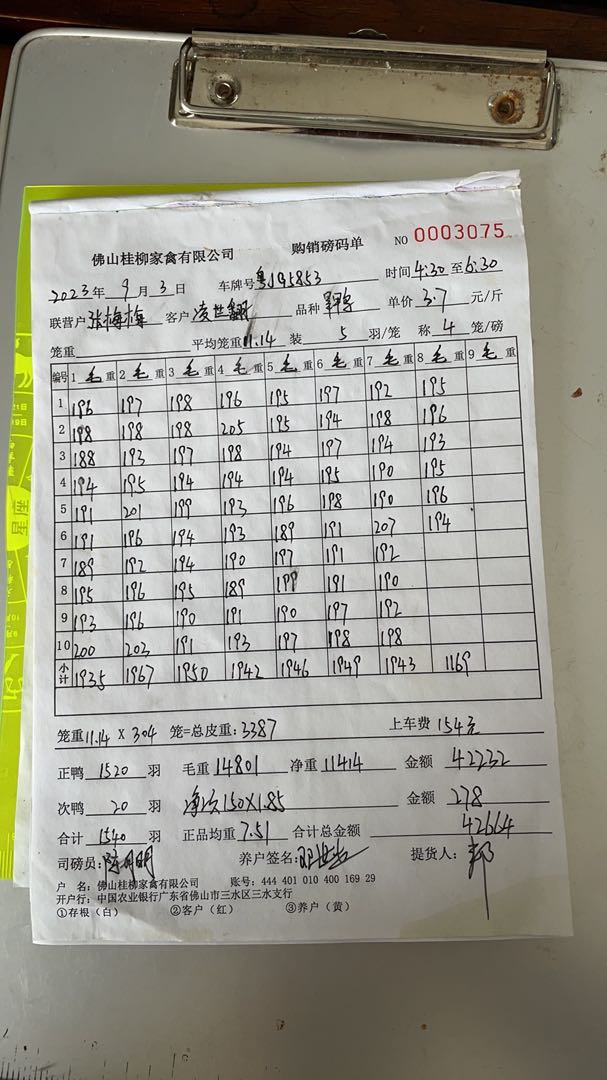 佛山桂柳家禽有限公司 购销磅码单 NO 0003075
2023年 9 月 3 日 车牌号 粤J95853 时间 4:30 至 6:30
联营户 张梅梅 客户 凌世 品种 单价 3.7 元/斤
笼重 平均笼重 11.14 装 5 羽/笼 称 4 笼/磅
编号 1 毛 重 2 毛 重 3 毛 重 4 毛 重 5 毛 重 6 毛 重 7 毛 重 8 毛 重 9 毛 重
1 196 197 198 196 195 197 192 195
2 198 198 198 205 195 194 198 196
3 188 193 197 198 194 197 194 193
4 194 195 194 194 194 195 190 195
5 191 201 199 193 196 198 190 196
6 191 196 194 193 189 191 207 194
7 189 192 194 190 197 191 192
8 195 196 195 189 199 191 190
9 193 196 190 191 190 197 192
10 200 203 191 193 197 198 198
小计 1935 1967 1950 1942 1946 1949 1943 1169
笼重 11.14 X 304 笼=总皮重: 3387 上车费 154元
正鸭 1520 羽 毛重 14801 净重 11414 金额 42232
次鸭 20 羽 净次150X1.85 金额 278
合计 1540 羽 正品均重 7.51 合计总金额 42664
司磅员: 陈明明 养户签名: 提货人:
户 名: 佛山桂柳家禽有限公司 账号: 444 401 010 400 169 29
开户行: 中国农业银行广东省佛山市三水区三水支行
①存根（白） ②客户（红） ③养户（黄）